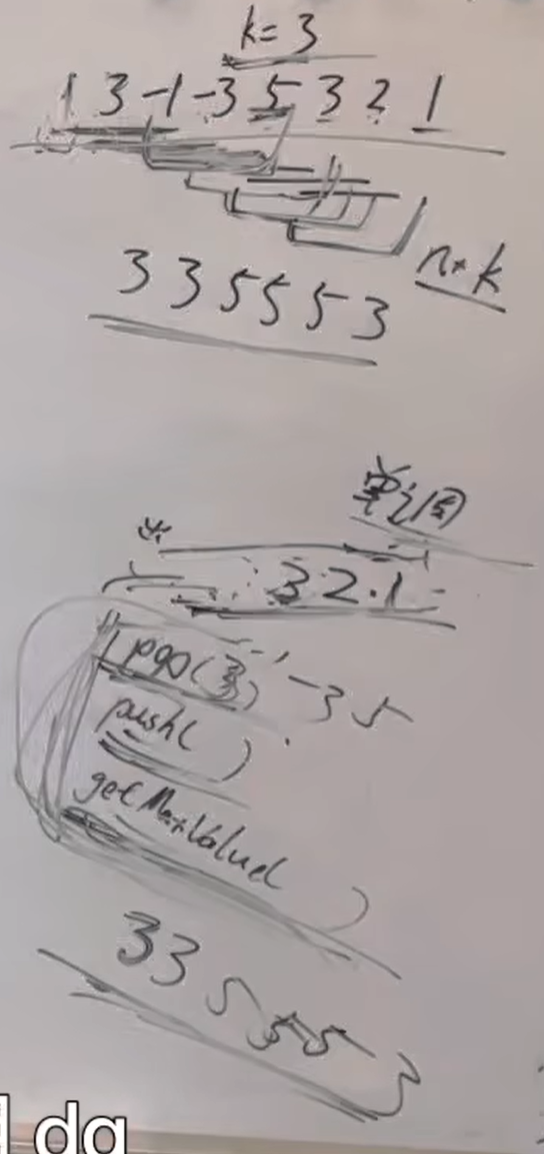 k=3
1 3 -1 -3 5 3 2 1
n*k
3 3 5 5 5 3
单调
3 2 . 1
pop(3) -3 5
push( )
getMaxValue( )
3 3 5 5 5 3
dq